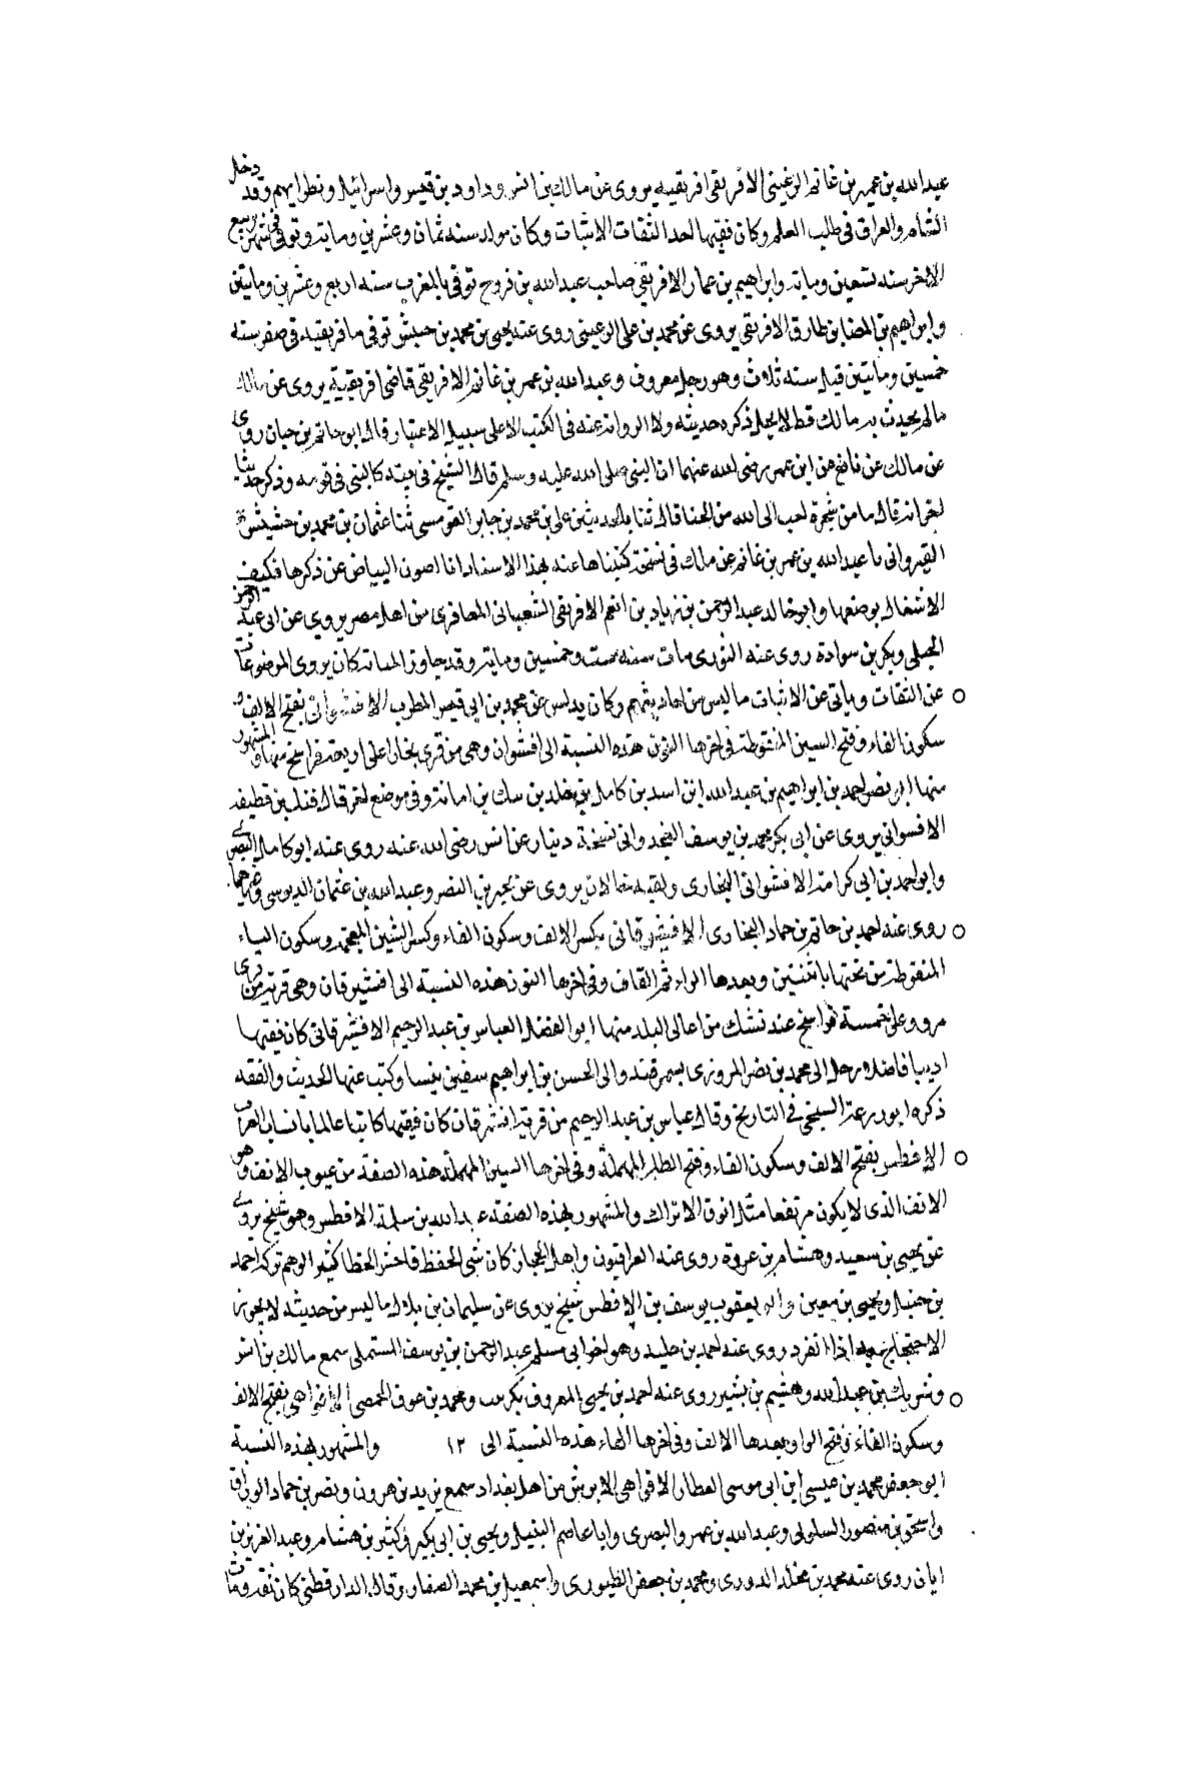 عبدالله بن عمير بن غانم الرعيني الافريقي افريقيه يروى عن مالك بن انس وداود بن قيس واسرائيل ونظرايهم وقد دخل
الشام والعراق فى طلب العلم وكان فقيها احد الثقات الاثبات وكان مولده سنه ثمان وعشرين ومايه وتوفى فى شهر ربيع
الاخر سنه تسعين ومايه وابراهيم بن عمار الافريقي صاحب عبدالله بن فروح توفى بالمغرب سنه اربع وعشرين ومايتين
وابراهيم بن المضا بن طارق الافريقي يروى عن محمد بن على الرعيني روى عنه يحيى بن محمد بن حبيش توفى بافريقيه فى صفر سنه
خمسين ومايتين قيل سنه ثلاث وهو رجل معروف وعبدالله بن عمر بن غانم الافريقي قاضى افريقية يروى عن مالك
مالم يحدث به مالك قط لا يحل ذكره حديثه ولا الروايه عنه فى الكتب الا على سبيل الاعتبار قال ابو حاتم بن حبان روى
عن مالك عن نافع عن ابن عمر رضى الله عنهما ان النبى صلى الله عليه وسلم قال الشيخ فى بيته كالنبى فى قومه وذكر حديثا
اخر انه قال ما من شجرة احب الى الله من الحنا قال ثنا بالحديثين على بن محمد بن جابر القومسى ثنا عثمان بن محمد بن حشيش
القيروانى ما عبدالله بن عمر بن غانم عن مالك فى نسخة كتبناها عنه بهذا الاسناد انا اصون البياض عن ذكرها فكيف
الاشغال بوضعها وابو خالد عبدالرحمن بن زياد بن انعم الافريقي الشعبانى المعافرى من اهل مصر يروي عن ابى عبد الرحمن
الحبلى وبكر بن سوادة روى عنه الثورى مات سنه ست وخمسين ومايه وقد جاوز المايه كان يروى الموضوعات
عن الثقات وياتى عن الاثبات ما ليس من احاديثهم وكان يدلس عن محمد بن ابى قيس المطرب الافشوانى بفتح الالف و
سكون الفاء وفتح السين المنقوطة فى اخرها النون هذه النسبة الى افشوان وهى من قرى بخارا على اربعة فراسخ منها والمشهور
منها ابو نصر احمد بن ابراهيم بن عبدالله ابن اسد بن كامل بن خالد بن سك بن امانه وفى موضع اخر قال فنك بن قطيفه
الافسوانى يروى عن ابى بكر محمد بن يوسف وانى نسخة دينار عن انس رضى الله عنه روى عنه ابو كامل البصرى
وابو احمد بن ابى كرامه الافشوانى البخارى ولقبه شالان يروى عن بحير بن النضر وعبدالله بن عثمان الدبوسى وغيرهما
روى عنه احمد بن حاتم بن حماد البخارى الافشيرقانى بكسر الالف وسكون الفاء وكسر الشين المعجمه وسكون الياء
المنقوطة من تحتها باثنتين وبعدها الراء ثم القاف وفى اخرها النون هذه النسبة الى افشيرقان وهى قرية من قرى
مرو على خمسة فراسخ عند نشك من اعالى البلد منها ابو الفضل العباس بن عبدالرحيم الافشيرقانى كان فقيها
اديبا فاضلا رحل الى محمد بن نصر المروزى بسمرقند والى الحسن بن ابراهيم سفين بنسا وكتب عنها الحديث والفقه
ذكره ابو زرعه السبخى فى التاريخ وقال عباس بن عبدالرحيم من قرية افشرقان كان فقيها كاتبا عالما بانساب العرب
الافطس بفتح الالف وسكون الفاء وفتح الطاء المهملة وفى اخرها السين المهملة هذه الصفة من عيوب الانف وهو
الانف الذى لا يكون مرتفعا مثل انوف الاتراك والمشهور بهذه الصفة عبدالله بن سلمة الافطس وهو شيخ يروى
عن يحيى بن سعيد وهشام بن عروة روى عنه العراقيون واهل الحجاز كان شى الحفظ فاحش الخطا كثير الوهم تركه احمد
بن حنبل ويحيى بن معين وابو يعقوب يوسف بن الافطس شيخ يروى عن سليمان بن بلال ما ليس من حديثه لا يجوز
الاحتجاج به اذا انفرد روى عنه احمد بن خليد وهو اخو ابى مسلم عبدالرحمن بن يوسف المستملى سمع مالك بن انس
وشريك بن عبدالله وهشيم بن بشير روى عنه احمد بن يحيى المعروف بكرنب ومحمد بن عوف الحمصى الافواهى بفتح الالف
وسكون الفاء وفتح الواو بعدها الالف وفى اخرها الهاء هذه النسبة الى ١٢ والمشهور بهذه النسبة
ابو جعفر محمد بن عيسى ابن ابى موسى العطار الافواهى الابرش من اهل بغداد سمع يزيد بن هرون ونصر بن حماد الوراق
واسحق بن منصور السلولى وعبدالله بن عمرو البصرى وابا عاصم النبيل ويحيى بن ابى بكير وكثير بن هشام وعبدالعزيز بن
ابان روى عنه محمد بن مخلد الدورى ومحمد بن جعفر الطبورى واسمعيل بن محمد الصفار وقال الدارقطنى كان ثقه ومات